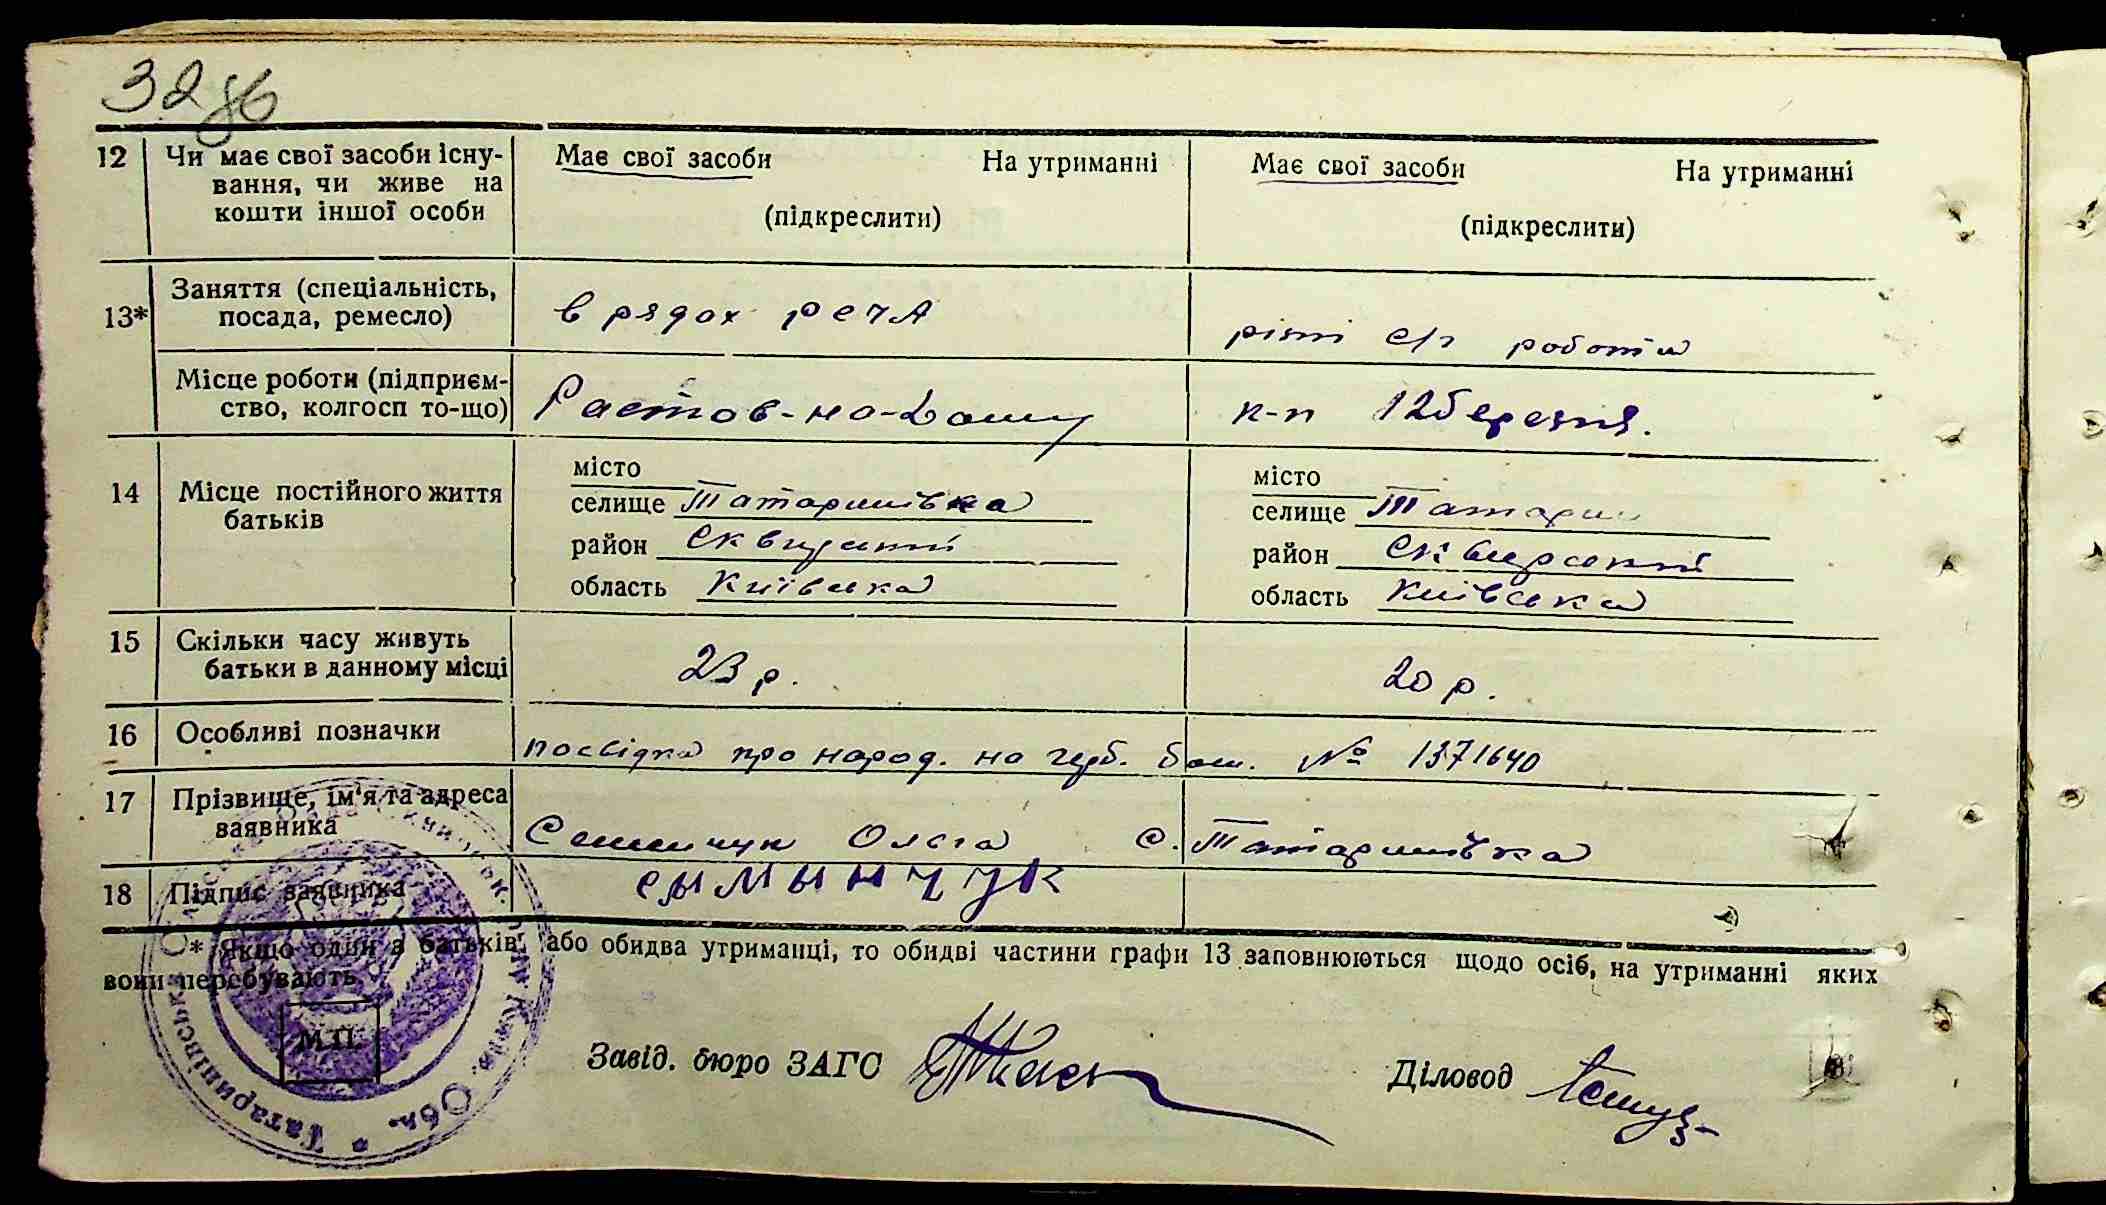 32 зв
12 Чи має свої засоби існу-
вання, чи живе на
кошти іншої особи
Має свої засоби На утриманні
(підкреслити)
Має свої засоби На утриманні
(підкреслити)
13* Заняття (спеціальність,
посада, ремесло)
в рядах РСЧА
різні с/г роботи
Місце роботи (підприєм-
ство, колгосп то-що)
Растов-на-Дону
к-п 12 березня.
14 Місце постійного життя
батьків
місто
селище Татаринівка
район Сквирский
область Київська
місто
селище Татарин
район Сквирський
область Київська
15 Скільки часу живуть
батьки в данному місці
23 р.
20 р.
16 Особливі позначки
посвідка про народ. на герб. бом. № 1371640
17 Прізвище, ім'я та адреса
заявника
Семинчук Ольга с. Татаринівка
18 Підпис заявника
сымынчук
* Якщо один з батьків, або обидва утриманці, то обидві частини графи 13 заповнюються щодо осіб, на утриманні яких
вони перебувають.
М.П.
Завід. бюро ЗАГС
Діловод
Татаринівська
Обл.